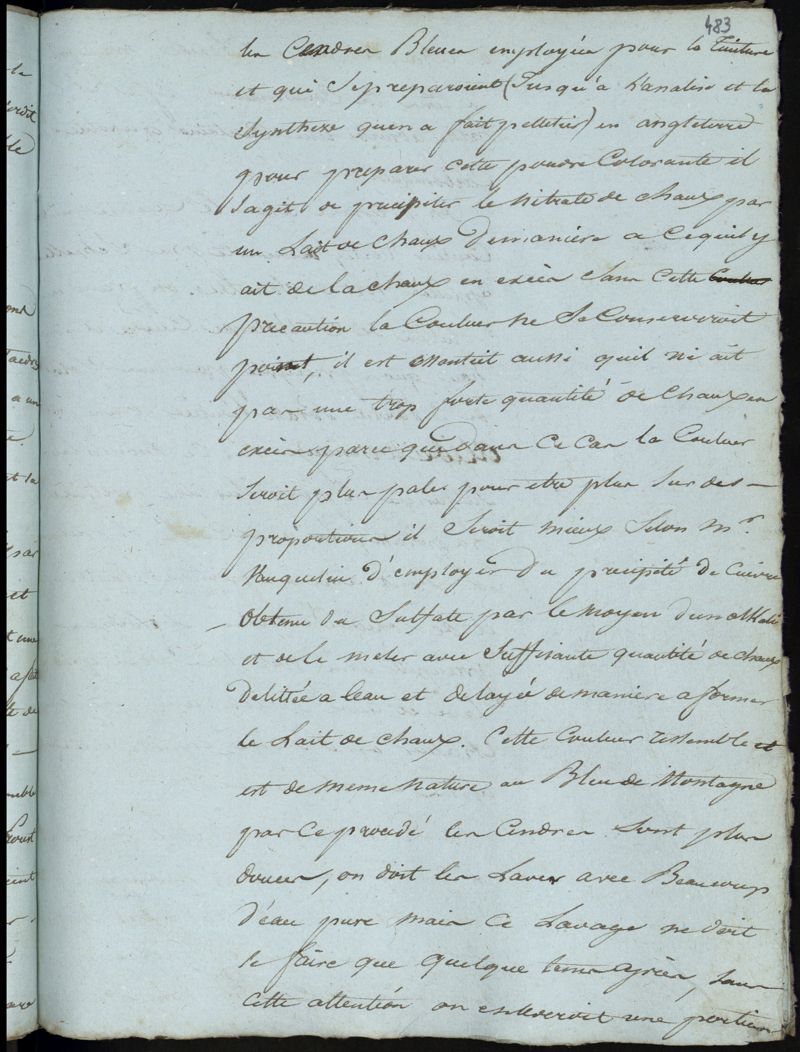 483
les Cendres Bleues employées pour la Teinture
et qui Se preparoient (Jusqu'à L'analise et la
Synthese qu'en a fait pelletier) en angleterre
pour preparer cette poudre Colorante il
Sagit de precipiter le Nitrate de chaux par
un Lait de Chaux De maniere a Cequil y
ait de la chaux en excès Sans Cette Couleur
precaution la Couleur ne Se Conserveroit
point, il est essentiel aussi quil ni ait
pas une trop forte quantité de Chaux en
excès parce que dans Ce Cas la Couleur
Seroit plus pales pour etre plus Sur des —
proportions il Seroit mieux Selon mr.
Vauquelin D'employer Du precipité De Cuivre
Obtenu du Sulfate par le moyen dun alkali
et de le meler avec Suffisante quantité de chaux
Delittée a leau et delayée de maniere a former
le Lait de chaux Cette Couleur ressemble et
est de meme Nature au Bleu de Montagne
par Ce procedé les Cendres Sont plus
douces, on doit les Laver avec Beaucoup
D'eau pure mais Ce Lavage ne doit
Se faire que quelque tems après, sans
cette attention on enleveroit une portion